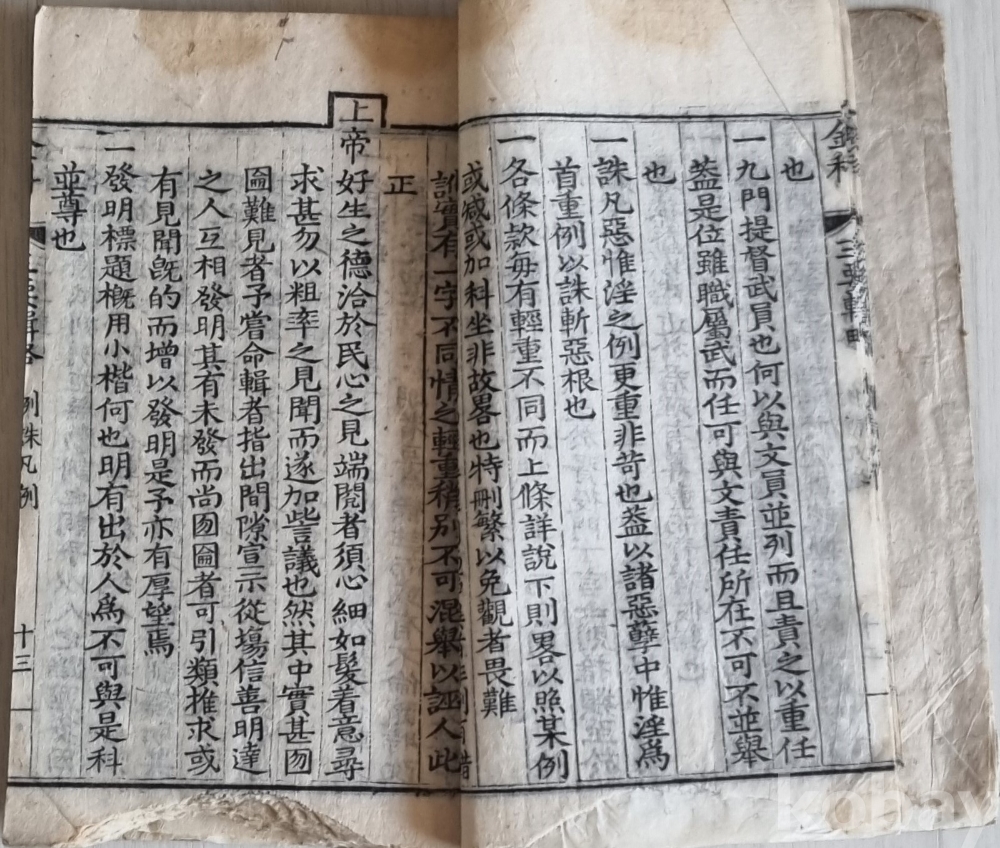 也
一九門提督武員也何以與文員並列而且責之以重任
葢是位雖職屬武而任可與文責任所在不可不並舉
也
一誅凡惡惟淫之例更重非苛也葢以諸惡孽中惟淫爲
首重例以誅斬惡根也
一各條款每有輕重不同而上條詳說下則畧以照某例
或减或加科坐非故畧也特刪繁以免觀者畏難
有一字不同情之輕重稍別不可混舉以誣人此
正
上帝好生之德洽於民心之見端閱者須心細如髮着意尋
求甚勿以粗率之見聞而遂加訾議也然其中實甚囫
圇難見者予嘗命輯者指出間隙宣示從塲信善明達
之人互相發明其有未發而尚囫圇者可引類推求或
有見聞旣的而增以發明是予亦有厚望焉
一發明標題槪用小楷何也明有出於人爲不可與是科
並尊也
例誅凡例
十三
kobay